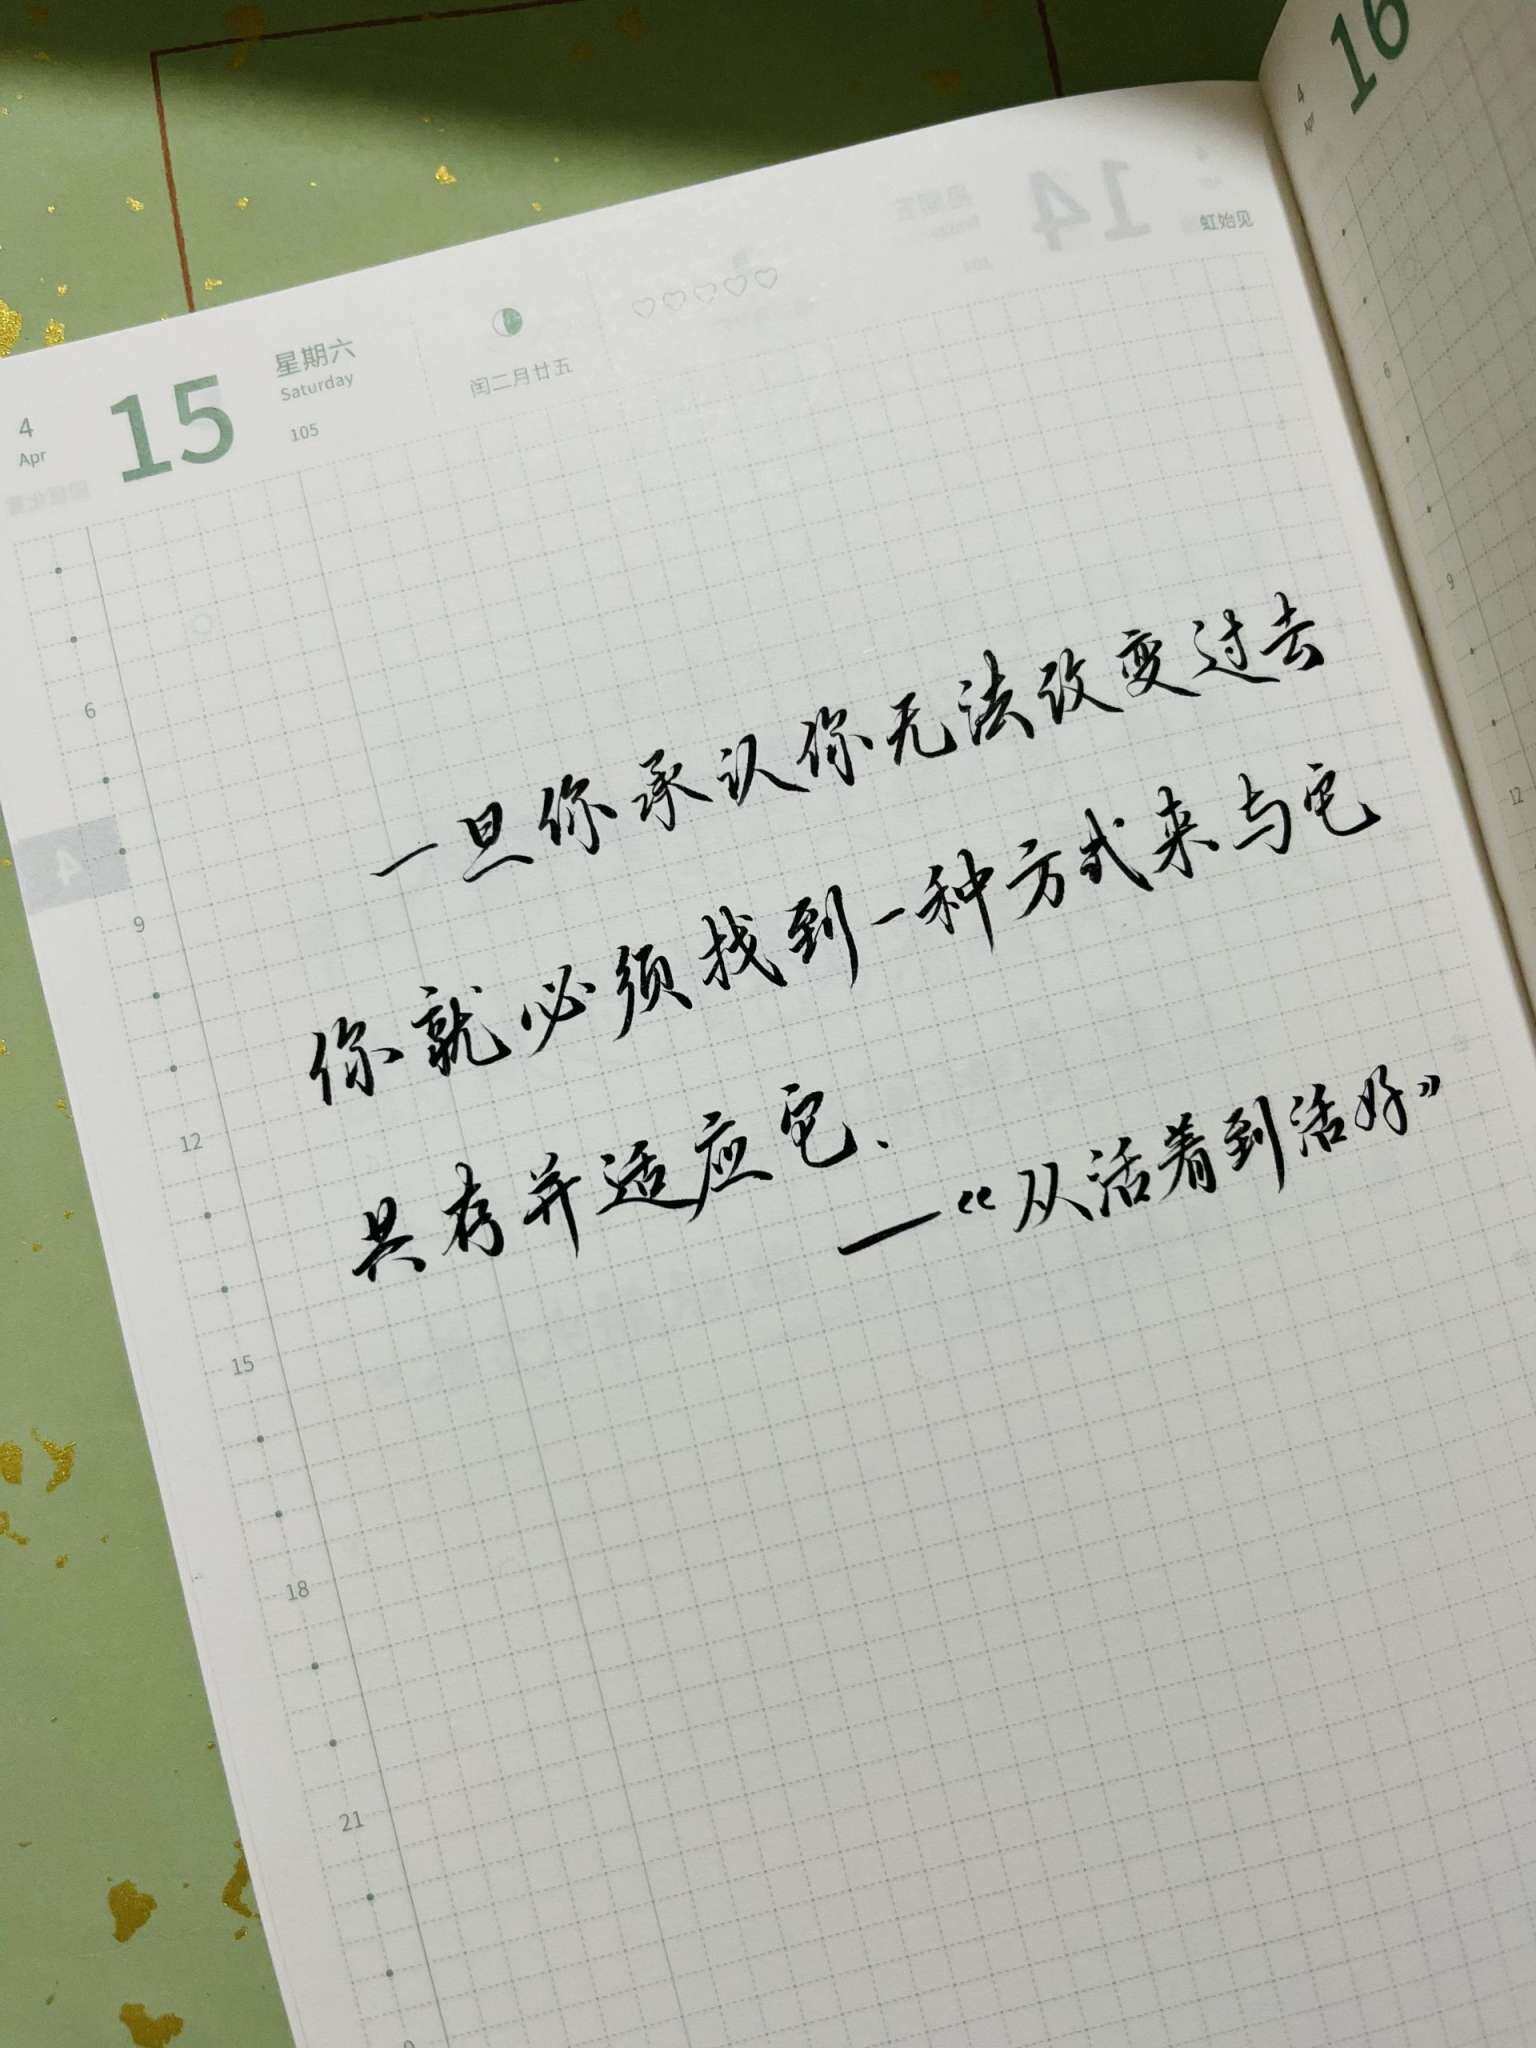 16
4
Apr
虹始见
4
Apr
15
星期六
Saturday
105
闰二月廿五
一旦你承认你无法改变过去
你就必须找到一种方式来与它
共存并适应它、
—《从活着到活好》
6
9
12
15
18
21
6
9
12